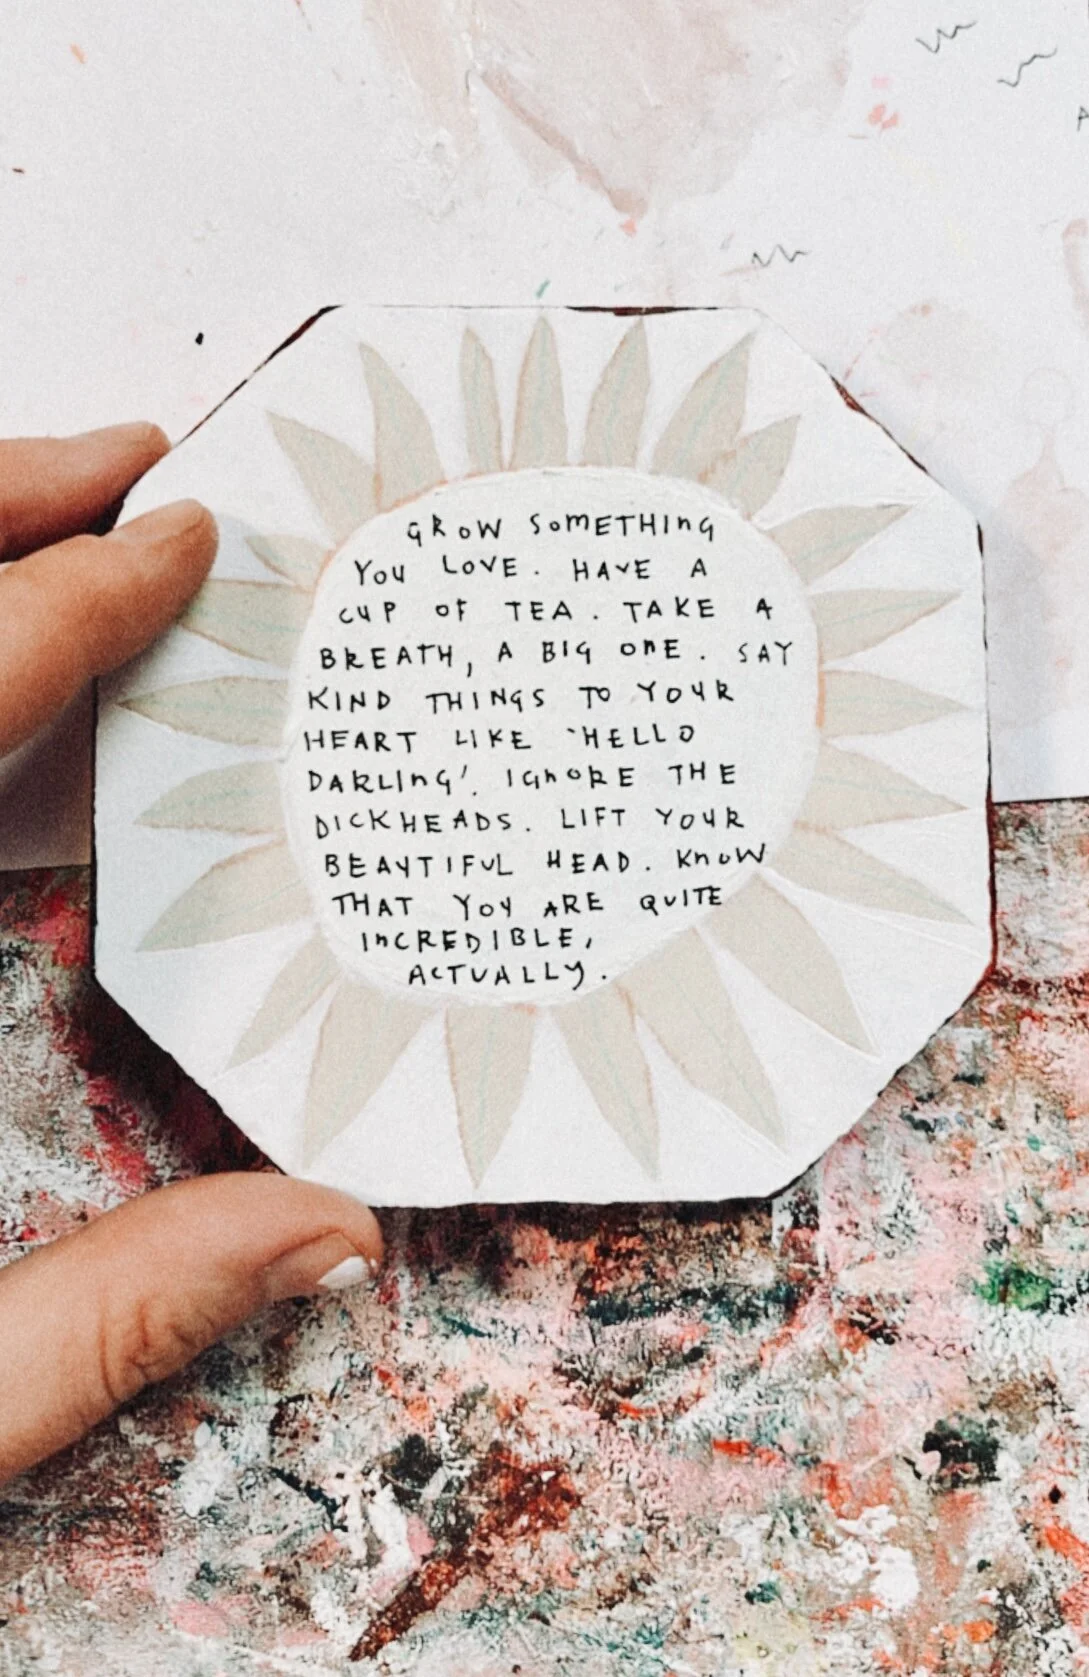 GROW SOMETHING
YOU LOVE. HAVE A
CUP OF TEA. TAKE A
BREATH, A BIG ONE. SAY
KIND THINGS TO YOUR
HEART LIKE 'HELLO
DARLING'. IGNORE THE
DICKHEADS. LIFT YOUR
BEAUTIFUL HEAD. KNOW
THAT YOU ARE QUITE
INCREDIBLE,
ACTUALLY.